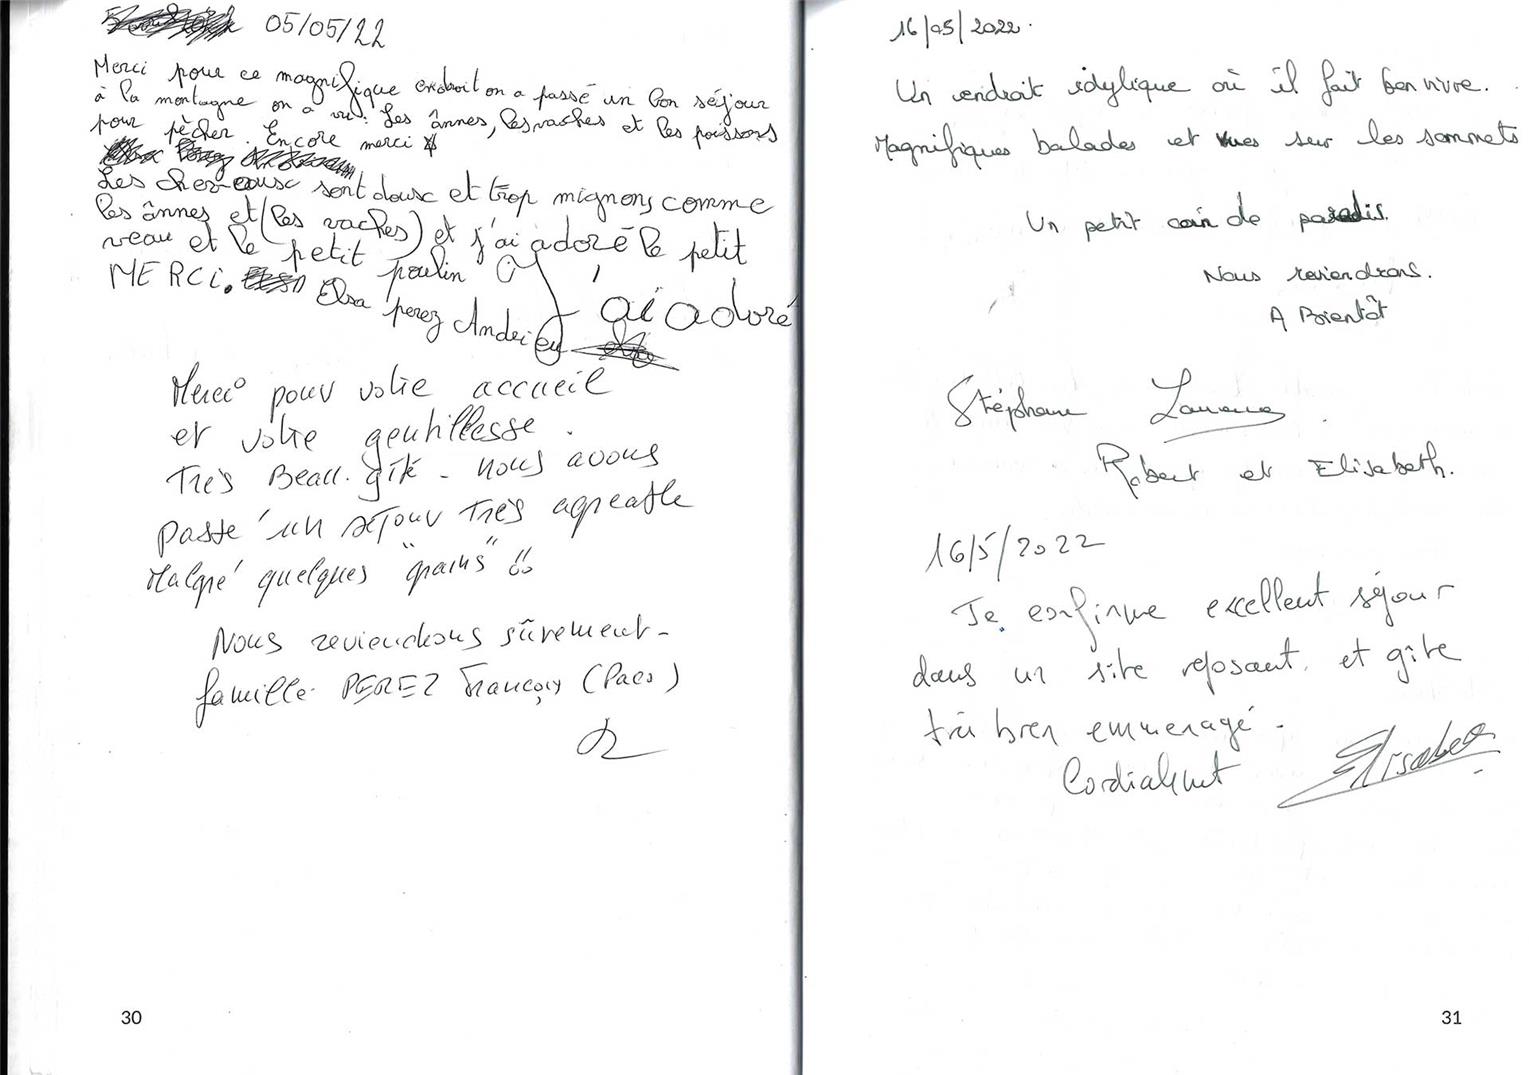 05/05/22
Merci pour ce magnifique endroit on a passé un bon séjour
à la montagne on a vu : Les ânnes, les vaches et les poissons
pour pêcher. Encore merci
Les cheveausc sont dousc et trop mignons comme
les ânnes et (les vaches) et j'ai adoré le petit
veau et le petit poulin
MERCi. Elsa perez Andrieu
J'ai adoré
Merci pour votre accueil
et votre gentillesse.
Très Beau gîte - nous avons
passé un séjour très agréable
Malgré quelques "grains" !!
Nous reviendrons sûrement -
famille PEREZ François (Paco)
30
16/05/2022.
Un endroit idylique où il fait bon vivre.
Magnifiques balades et vues sur les sommets
Un petit coin de paradis.
Nous reviendrons.
A Bientôt
Stéphane
Robert et Elisabeth.
16/5/2022
Je confirme excellent séjour
dans un site reposant, et gîte
très bien emmenagé -
Cordialement Elisabeth
31